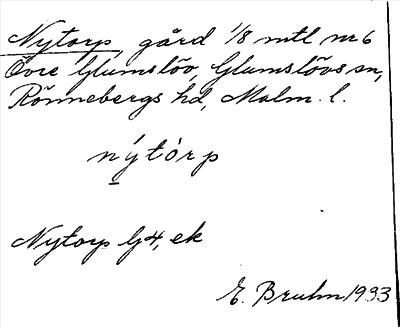 Nytorp, gård 1/8 mtl nr 6
Övre Glumslöv, Glumslövs sn,
Rönnebergs hd, Malm. l.
nýtòrp
Nytorp G4, ek
E. Bruhn 1933